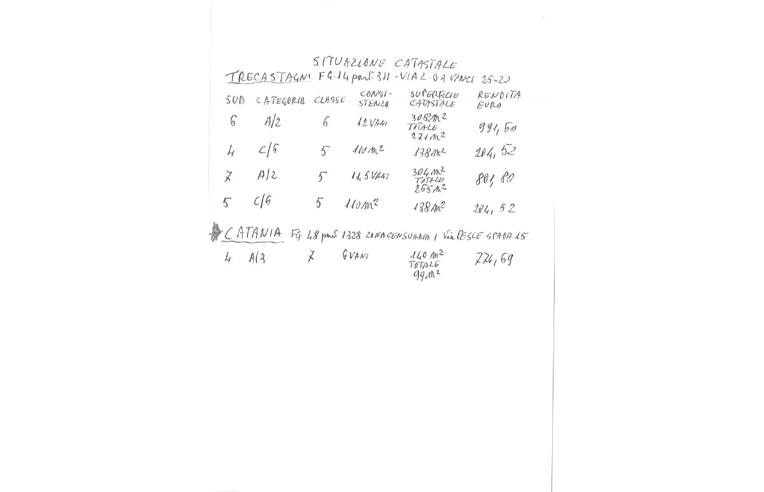 SITUAZIONE CATASTALE
TRECASTAGNI FG. 14 part 311 - VIA L. DA VINCI 25-27
SUB CATEGORIA CLASSE CONSI-STENZA SUPERFICIE CATASTALE RENDITA EURO
6 A/2 6 12 VANI 308 m² TOTALE 271 m² 991,60
4 C/6 5 110 m² 138 m² 204,52
7 A/2 5 11,5 VANI 304 m² TOTALE 265 m² 801,80
5 C/6 5 110 m² 138 m² 204,52
CATANIA FG. 48 part 1328 ZONA CENSUARIA 1 Via PESCE SPADA 15
4 A/3 7 6 VANI 140 m² TOTALE 99 m² 774,69